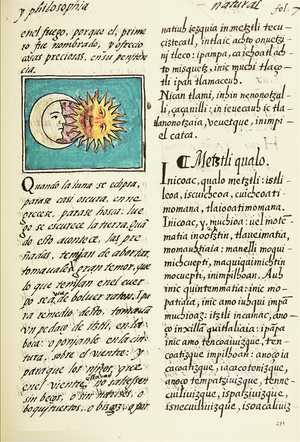 y philosophia
natural
fol. 7
enel fuego. porque el, prime
ro fue nombrado, y ofrecio
casas preciosas, en su peniten
cia.
Quando la luna se eclipsa,
parase casi oscura. enne
grecese, parase hosca: lue
go se escurece la tierra. Qua
do esto acontece, las pre
ñadas, temjan de abordar
tomauales gran temor, que
lo que tenjan enel cuer
po se a, de boluer raton. I pa
ra remedio desto, tomauan
vn pedaço de itztli, en la
boca: o ponjanle en la cin
tura, sobre el vientre: y
paraque los njños que
enel vientre, no saliessen
sin beços, o sin narizes, o
boquituertos, o bizcos: o por
natiuh iezquia in metztli tecu
ciztecatl, intlaic achto onuetzi
nj tleco: ipampa, ca iehoatl ach
to misquetz, inic muchi tlaço
tli ipan tlamaceuh.
Nican tlami, inhin nenonotzal
li, çaçanilli: in ie uecauh ic tla
nonotzaia, veuetque, in impi
el catca.
¶ Metztli qualo.
Inicoac, qualo metztli: istli
leoa, iscuicheoa, cuicheoati
momana, tlaioatimomana.
Inicoac, y, muchioa: uel mote
matia inootztin, tlaueimatia,
momauhtiaia: manelli moqui
michcuepti, maquiqujmichtin
mocuepti, inimpilhoan. Auh
inic quintemmatia: inic mo
patiaia, inic amo iuhqui impã
muchioaz: itztli incamac, ano
ço inxillã quitlaliaia: ipãpa
inic amo tencoaiuizque, ten
coatizque impilhoan: anoço ia
cacoatizque, iacacotonizque,
anoço tempatziuizque, tenne
cuiliuizque, ispatziuizque,
isnecuiliuizque, isoacaliuiz
233